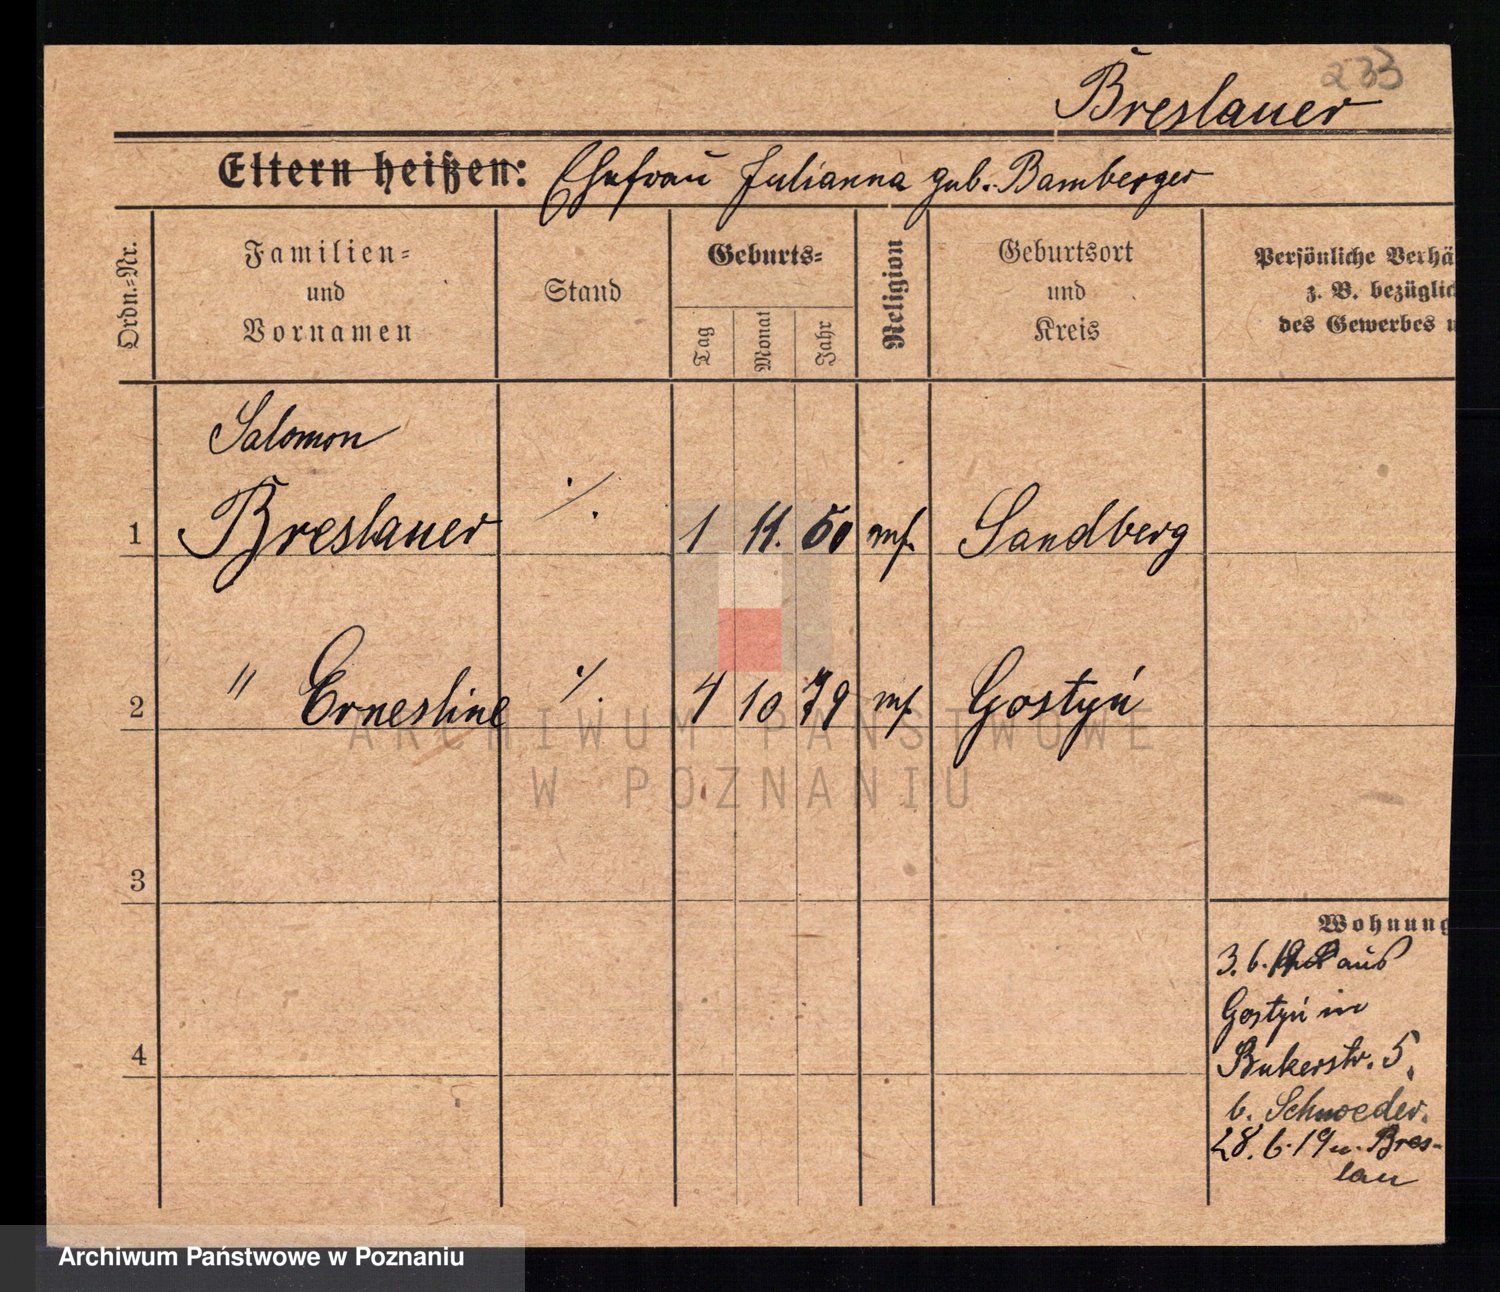 233
Breslauer
Eltern heißen: Ehefrau Julianna geb. Bamberger
Ordn.-Nr.
Familien-
und
Vornamen
Stand
Geburts-
Tag
Monat
Jahr
Religion
Geburtsort
und
Kreis
Persönliche Verhä
z. B. bezüglic
des Gewerbes u
Salomon
1 Breslauer ·/. 1 11. 50 mos. Sandberg
2 " Ernestine ·/. 4 10 79 mos. Gostyń
3
4
Wohnung
3. 6. 19 aus
Gostyń in
Bukerstr. 5,
b. Schweder.
28. 6. 19 n. Bres-
lau
ARCHIWUM PAŃSTWOWE
W POZNANIU
Archiwum Państwowe w Poznaniu